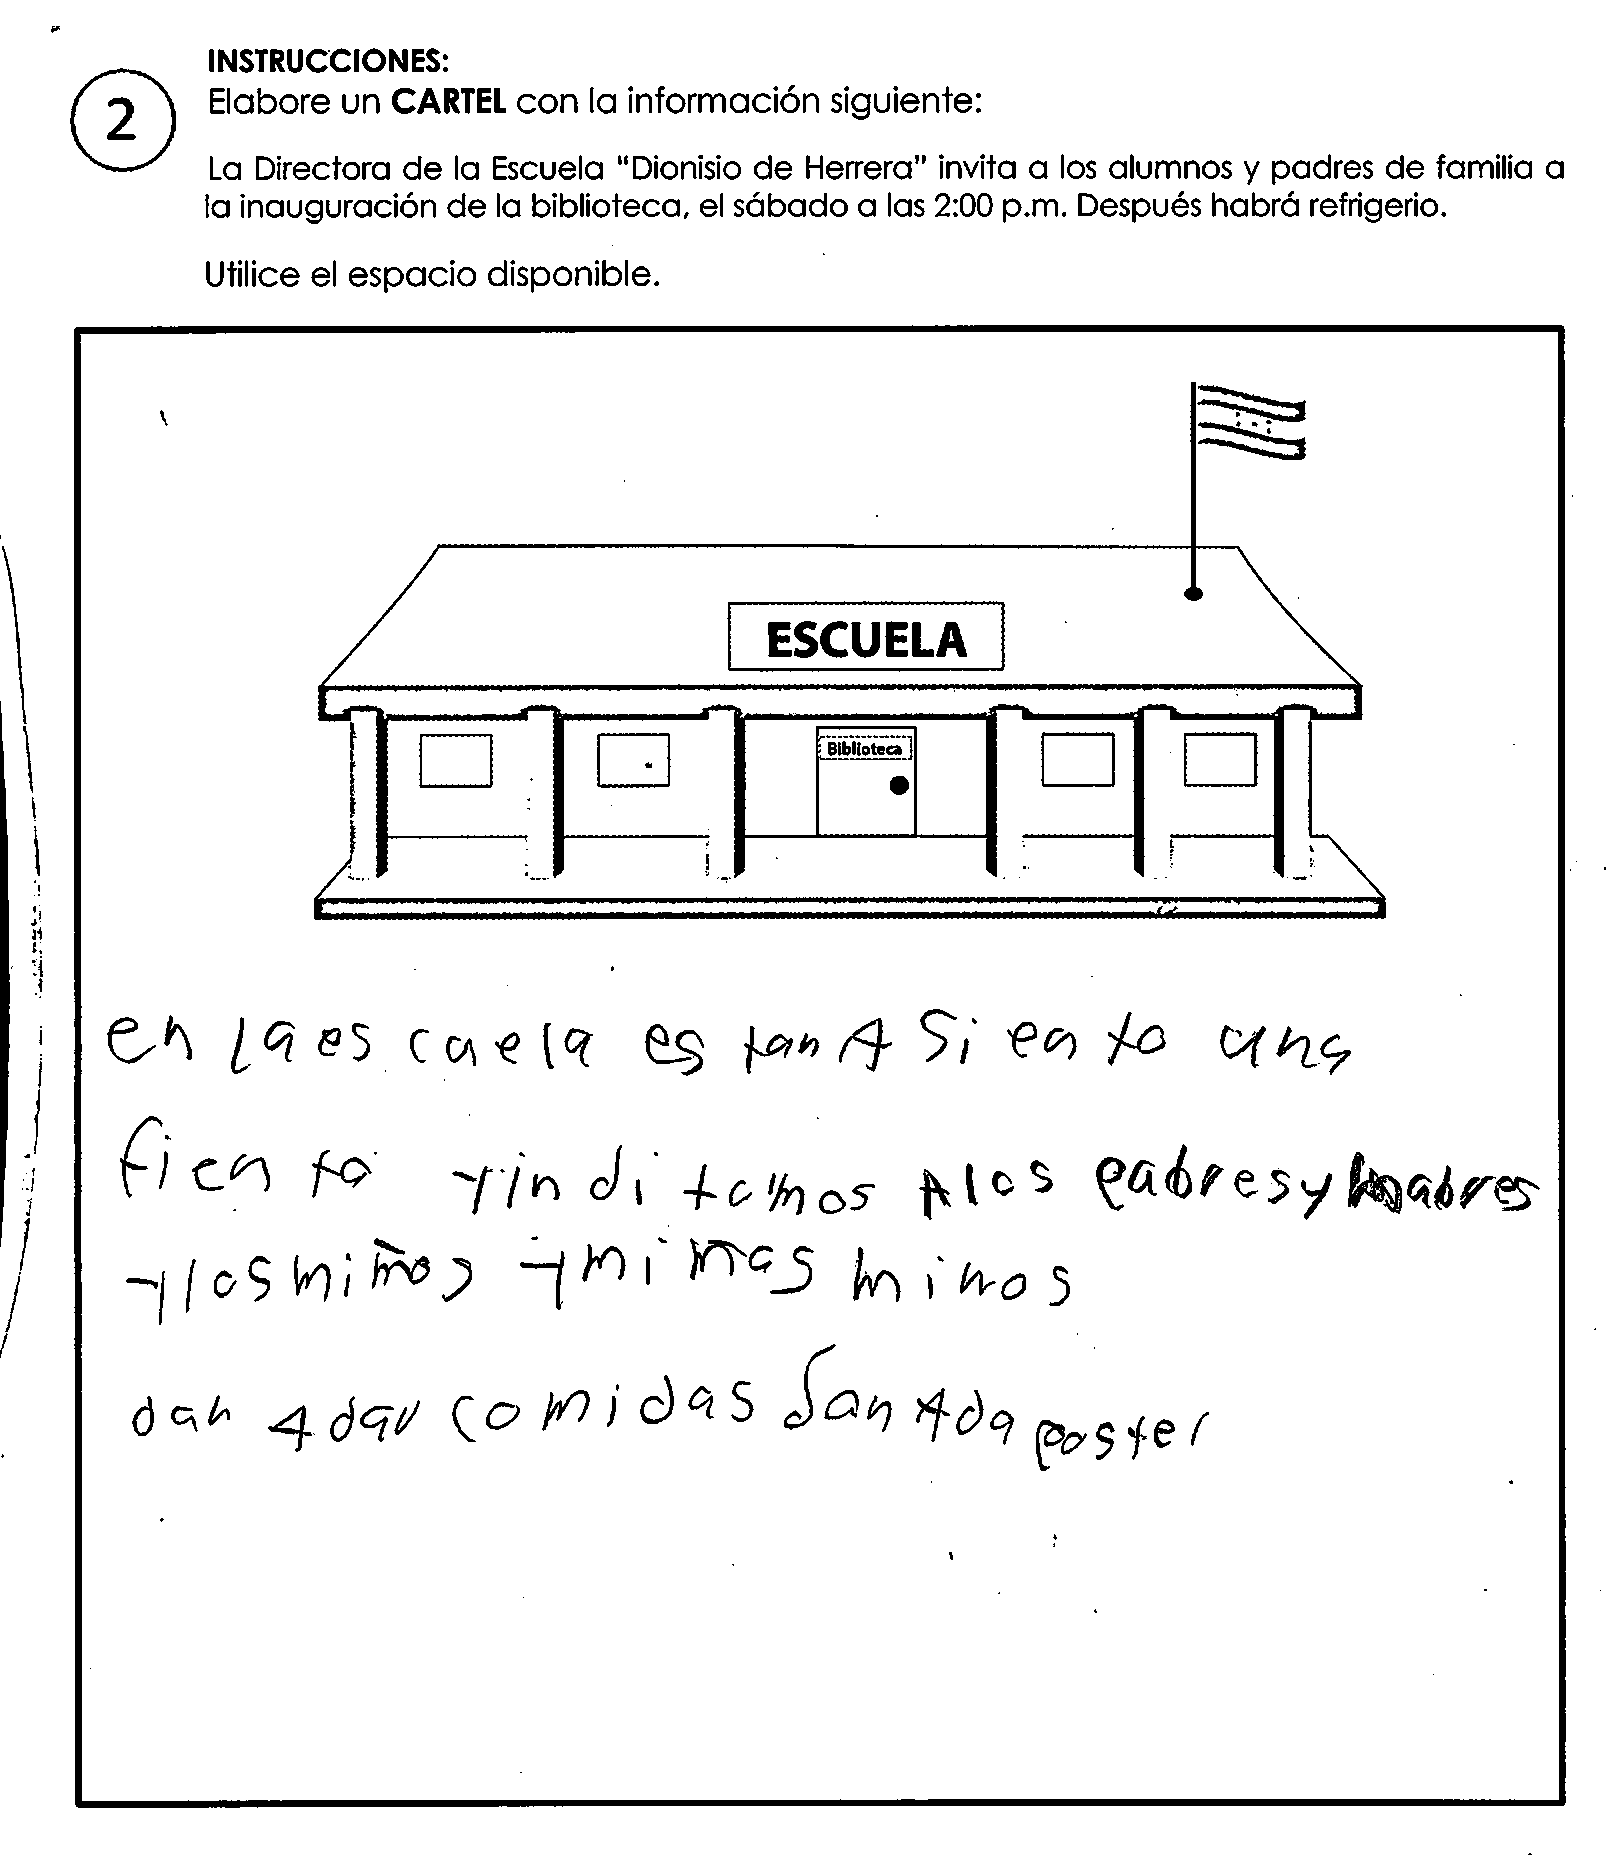 INSTRUCCIONES:
2
Elabore un CARTEL con la información siguiente:
La Directora de la Escuela "Dionisio de Herrera" invita a los alumnos y padres de familia a
la inauguración de la biblioteca, el sábado a las 2:00 p.m. Después habrá refrigerio.
Utilice el espacio disponible.
ESCUELA
Biblioteca
en la es cuela es tan A Si en to una
fien ta y indi tamos A los pabres y mabres
y los miños y mi mas minos
dan A dar comidas dan A da paster